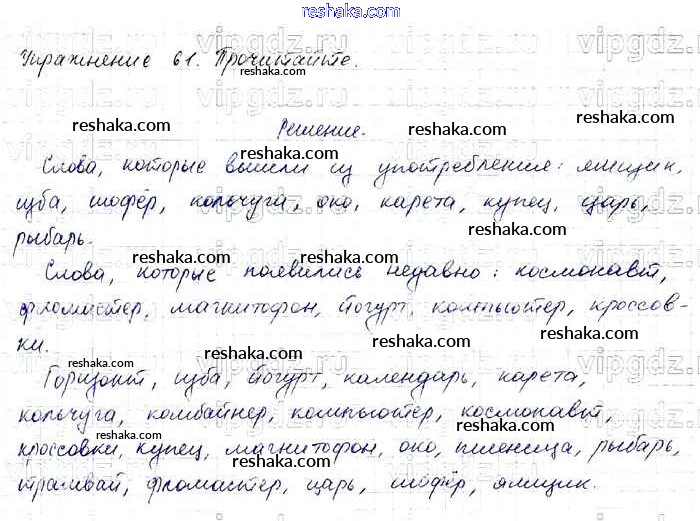 reshaka.com
Упражнение 61. Прочитайте.
Решение.
Слова, которые вышли из употребления: ямщик,
изба, шофёр, кольчуга, око, карета, купец, царь,
рыбарь.
Слова, которые появились недавно: космонавт,
фломастер, магнитофон, йогурт, компьютер, кроссов-
ки.
Горизонт, изба, йогурт, календарь, карета,
кольчуга, комбайнер, компьютер, космонавт,
кроссовки, купец, магнитофон, око, пшеница, рыбарь,
трамвай, фломастер, царь, шофёр, ямщик.